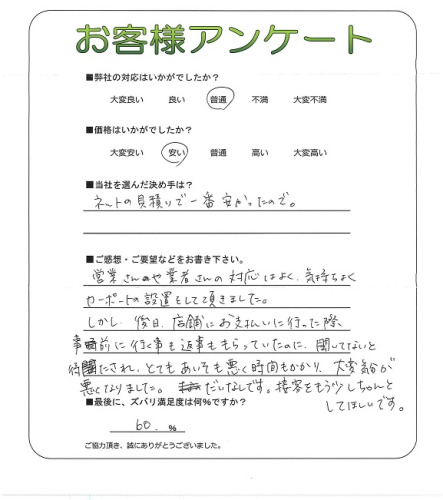 お客様アンケート
■弊社の対応はいかがでしたか？
大変良い 良い 普通 不満 大変不満
■価格はいかがでしたか？
大変安い 安い 普通 高い 大変高い
■当社を選んだ決め手は？
ネットの見積りで一番安かったので。
■ご感想・ご要望などをお書き下さい。
営業さんや業者さんの対応はよく、気持ちよく
カーポートの設置をして頂きました。
しかし、後日、店舗にお支払いに行った際、
事前に行く事も返事ももらっていたのに、聞いてないと
待たされ、とてもあいそも悪く時間もかかり、大変気分が
悪くなりました。だいなしです。接客をもう少しちゃんと
してほしいです。
■最後に、ズバリ満足度は何％ですか？
60. ％
ご協力頂き、誠にありがとうございました。